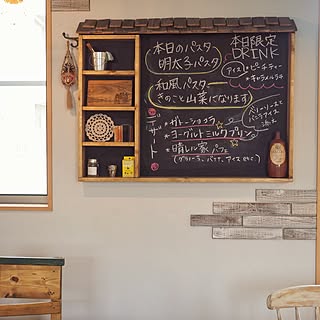 本日のパスタ
明太子パスタ
和風パスター
きのこと山菜になります
本日限定
DRINK
アイス
・ピーチティー
・キャラメルラテ
デザート
*ガトーショコラ
*ヨーグルトミルクプリン
*晴レル家パフェ
ベリーソースと
バニラアイス